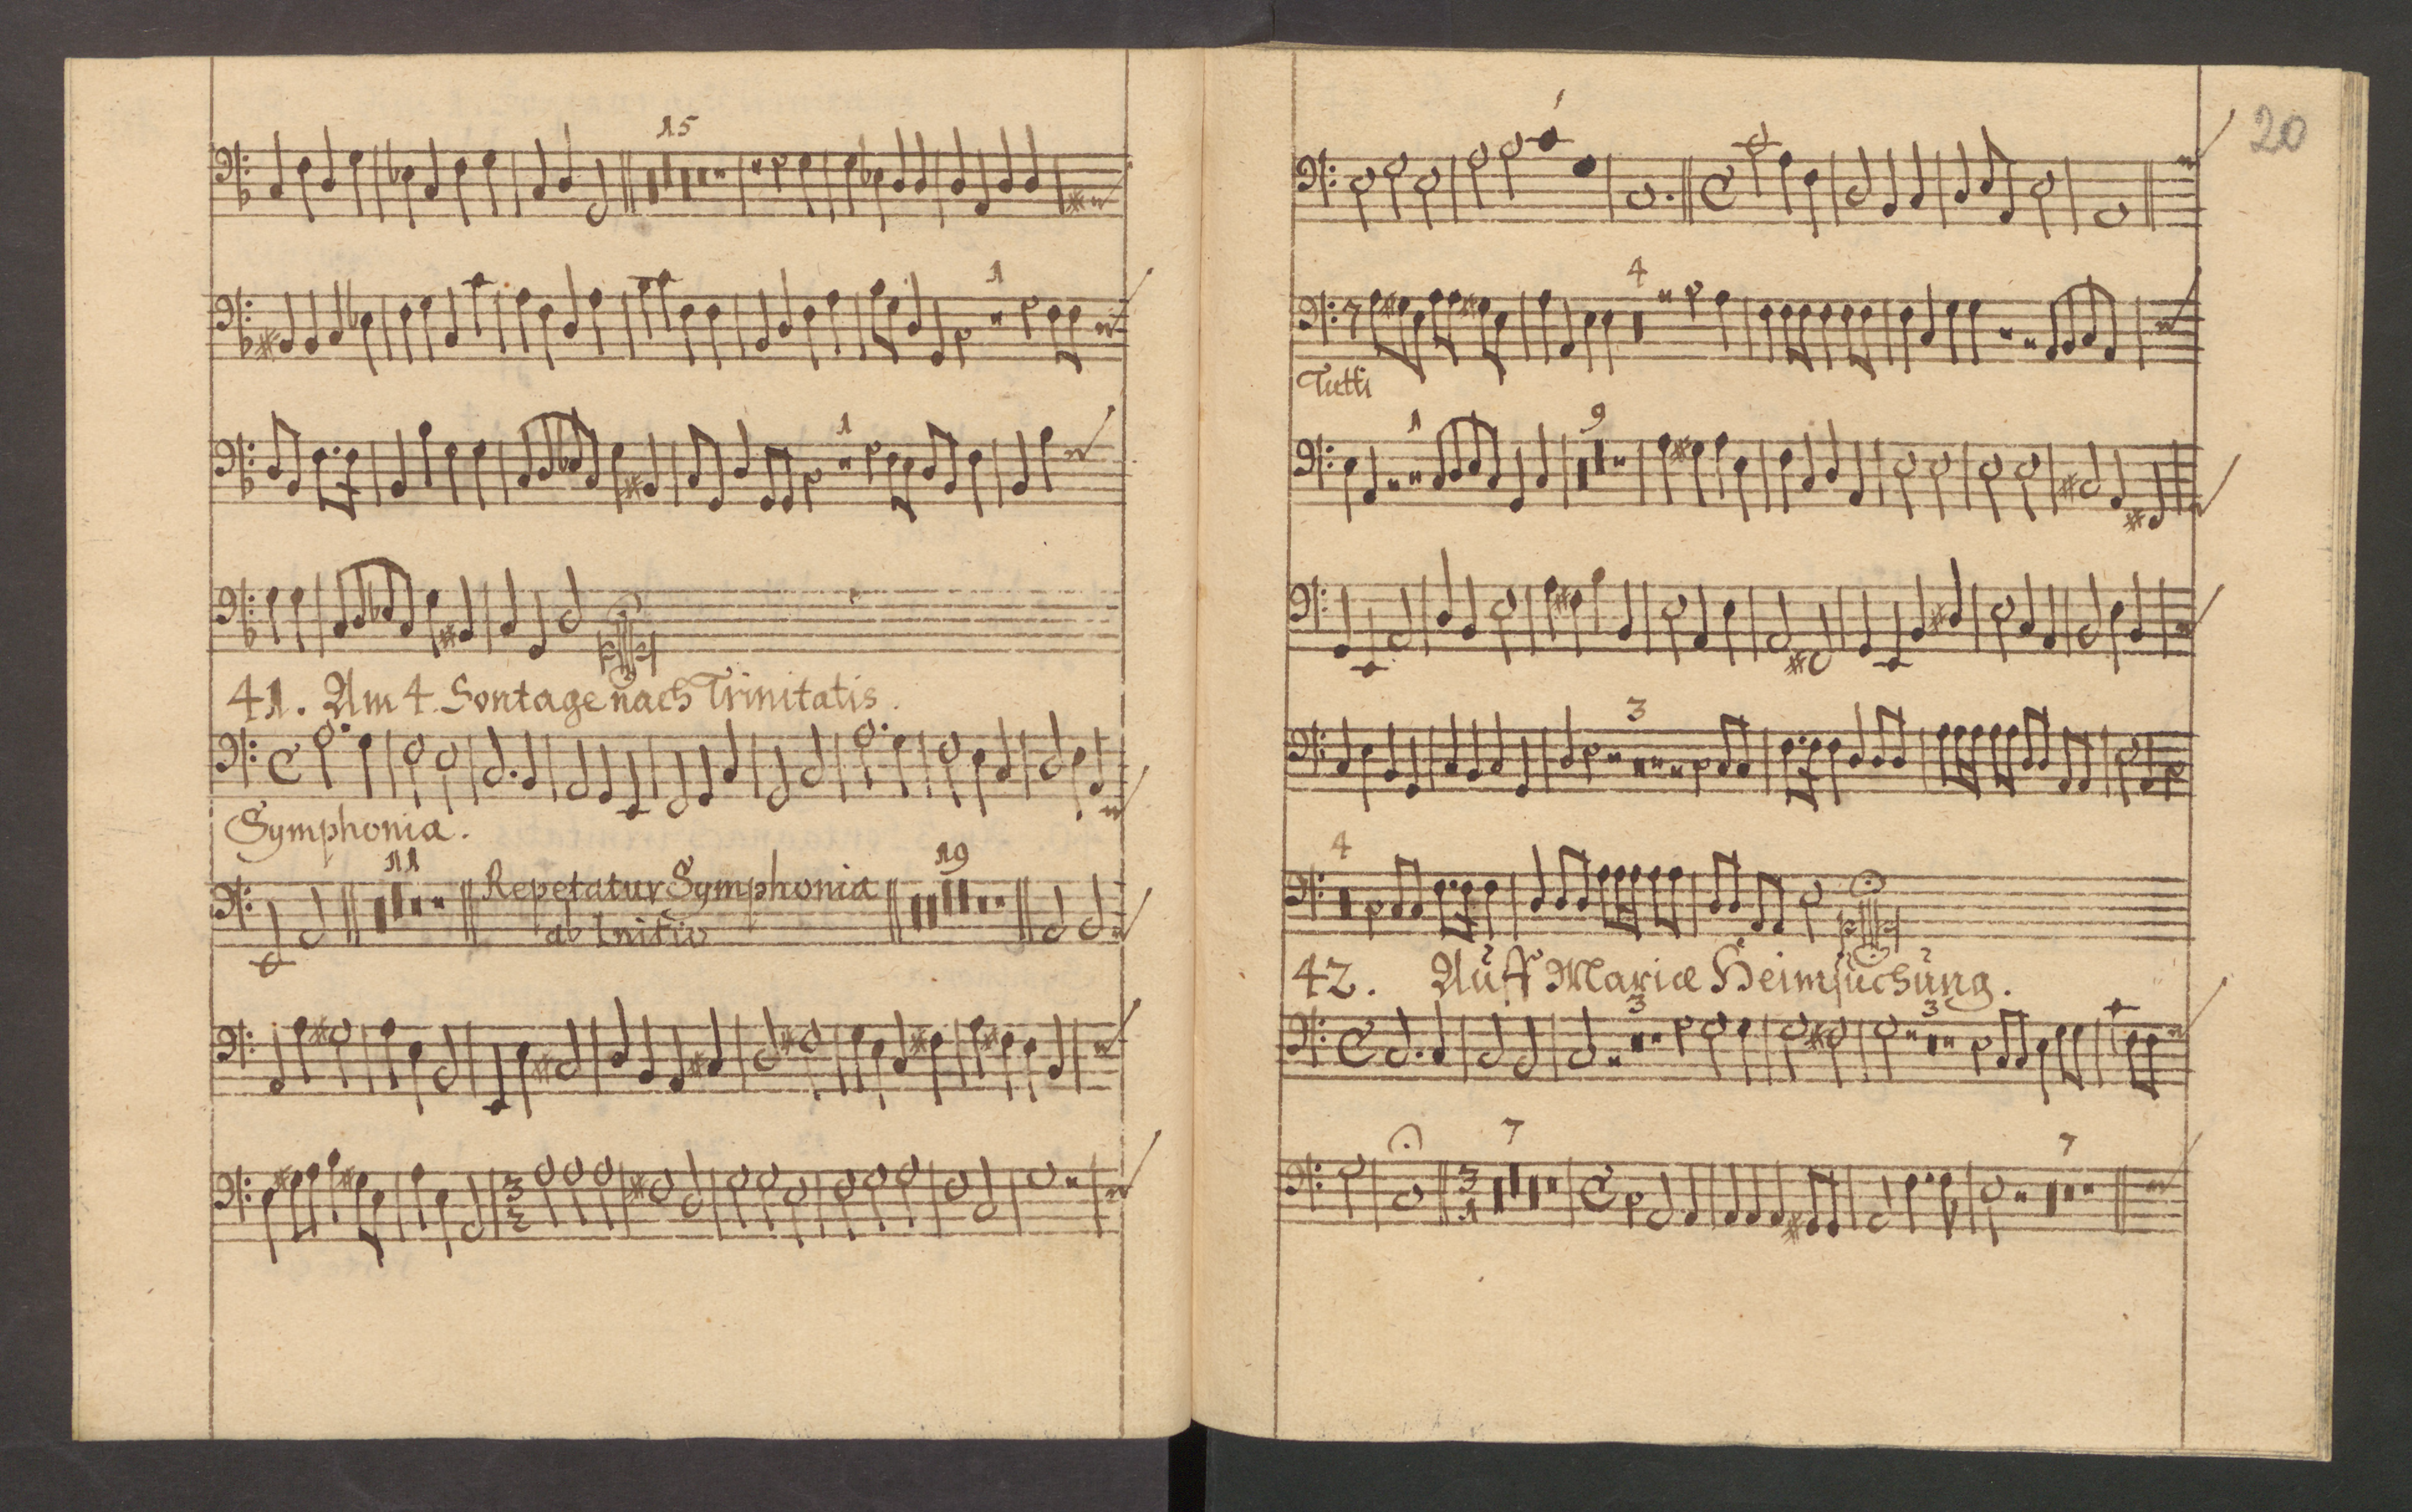 15
1
1
41. Am 4. Sontage nach Trinitatis.
Symphonia.
11
Repetatur Symphonia
19
ab Initio
3
2
20
4
Tutti
1
9
3
4
42. Auff Mariæ Heimsuchung.
3
3
7
3
1
7